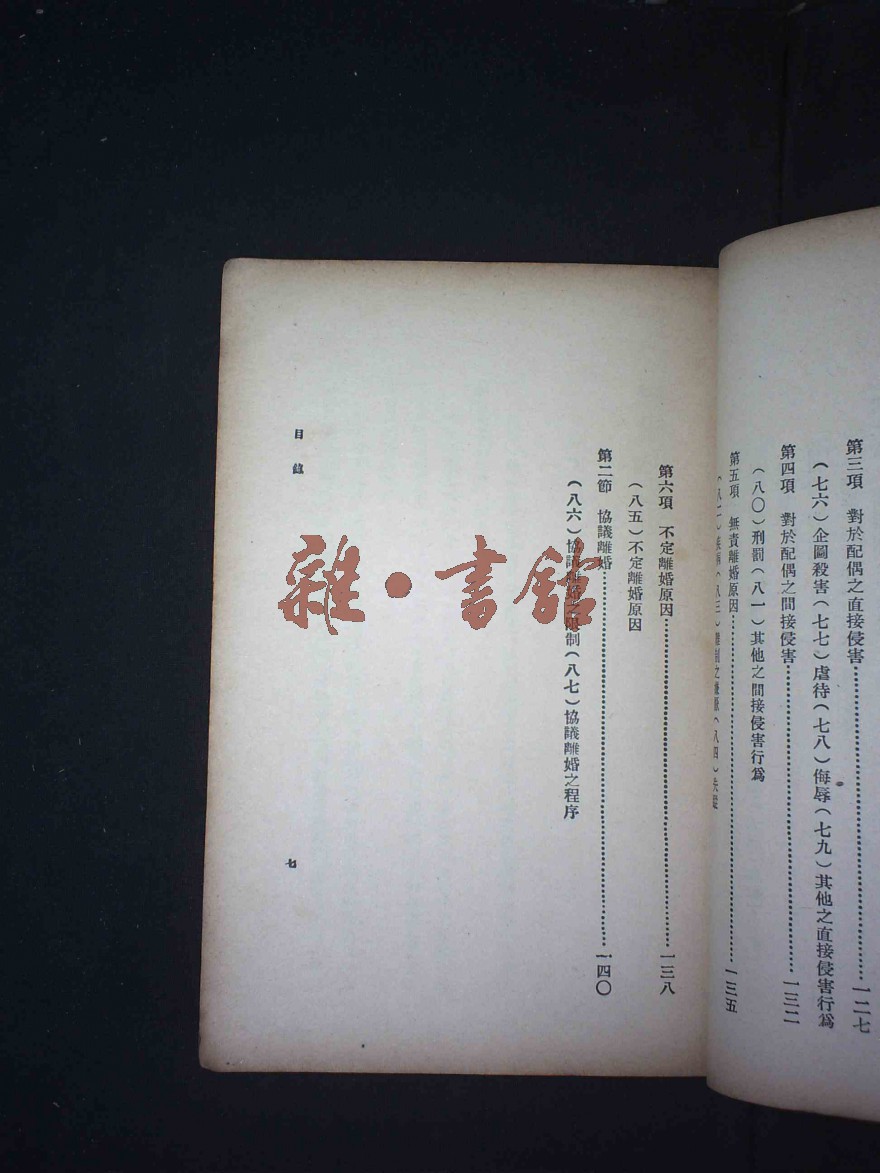 第三項　對於配偶之直接侵害………一二七
（七六）企圖殺害（七七）虐待（七八）侮辱（七九）其他之直接侵害行爲
第四項　對於配偶之間接侵害………一三二
（八〇）刑罰（八一）其他之間接侵害行爲
第五項　無責離婚原因………一三五
（八三）（八四）
第六項　不定離婚原因………一三八
（八五）不定離婚原因
第二節　協議離婚………一四〇
（八六）協議離婚之制（八七）協議離婚之程序
目錄
七
雜·書館